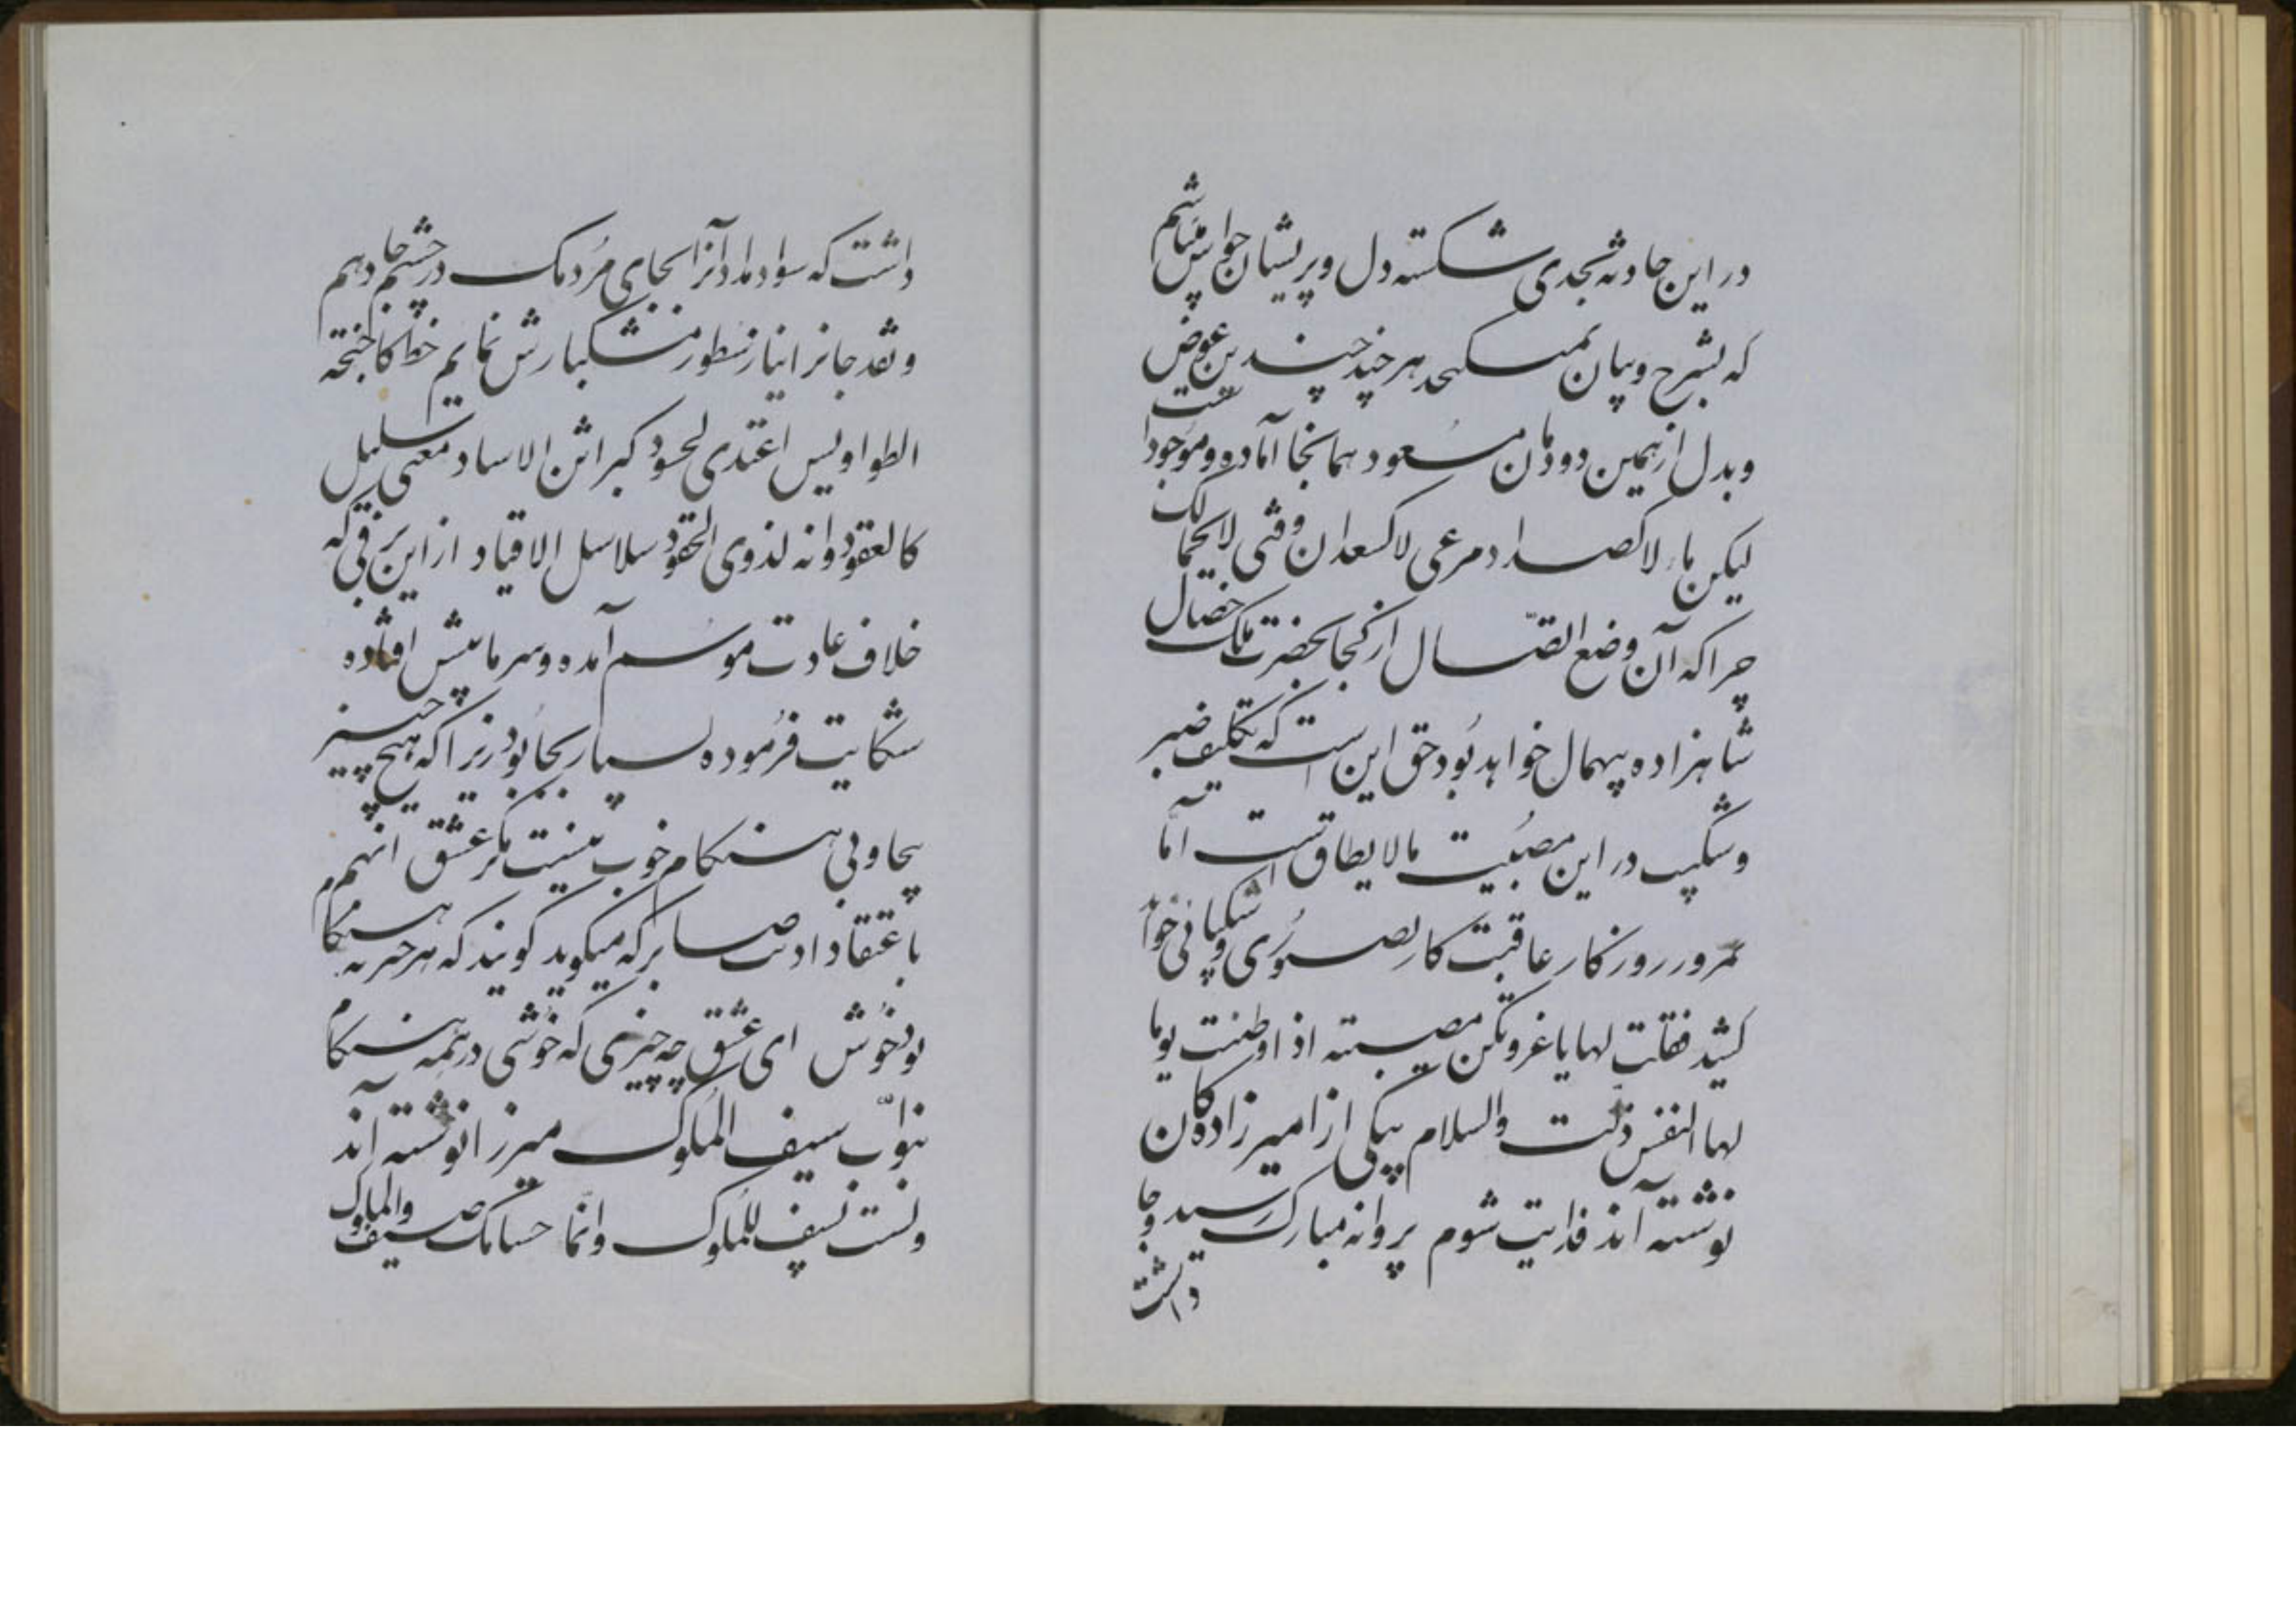 در این حادثه بحدی شکسته دل و پریشان حواس میباشم
که بشرح و بیان نمیکنجد هر چند چندین عوض
و بدل از همین دودمان مسعود همانجا آماده و موجود است
لیکن ماء لا کصداء و مرعی لا کسعدان و فتی لا کمالک
چرا که آن وضع اتصال از کجا بحضرت ملک خصال
شاهزاده بیهمال خواهد بود حق این است که تکلیف صبر
و شکیب در این مصیبت مالایطاق است امّا
بمرور روزکار عاقبت کار بصبوری و شکیبائی خواهد
کشید فقلت لها یا عز کل مصیبته اذا وطنت یوما
لها النفس ذلت والسلام بیکی از امیرزادکان
نوشته آند فدایت شوم پروانه مبارک رسید و جا
داشت
داشت که سواد مداد آنرا بجای مردمک در چشم جا دهم
و نقد جانرا نیاز سطور مشکبارش نمایم خط کاجنحة
الطواویس اغتدی لحسود کبراثن الاساد معنی سلیل
کالعقود و انه لذوی الحقود سلاسل الاقیاد از این برفی که
خلاف عادت موسم آمده و سرمایش افتاده
شکایت فرموده بسیار بجا بود زیرا که هیچ چیز
بیجا و بی هنکام خوب نیست مکر عشق آنهم
باعتقاد ادیب صابر که میکوید کویند که هر چیز به هنکام
بود خوش ای عشق چه چیزی که خوشی در همه هنکام
بنوّاب سیف الملوک میرزا نوشته آند
و لست بسیف للملوک و انّما حسامک سیف والملوک